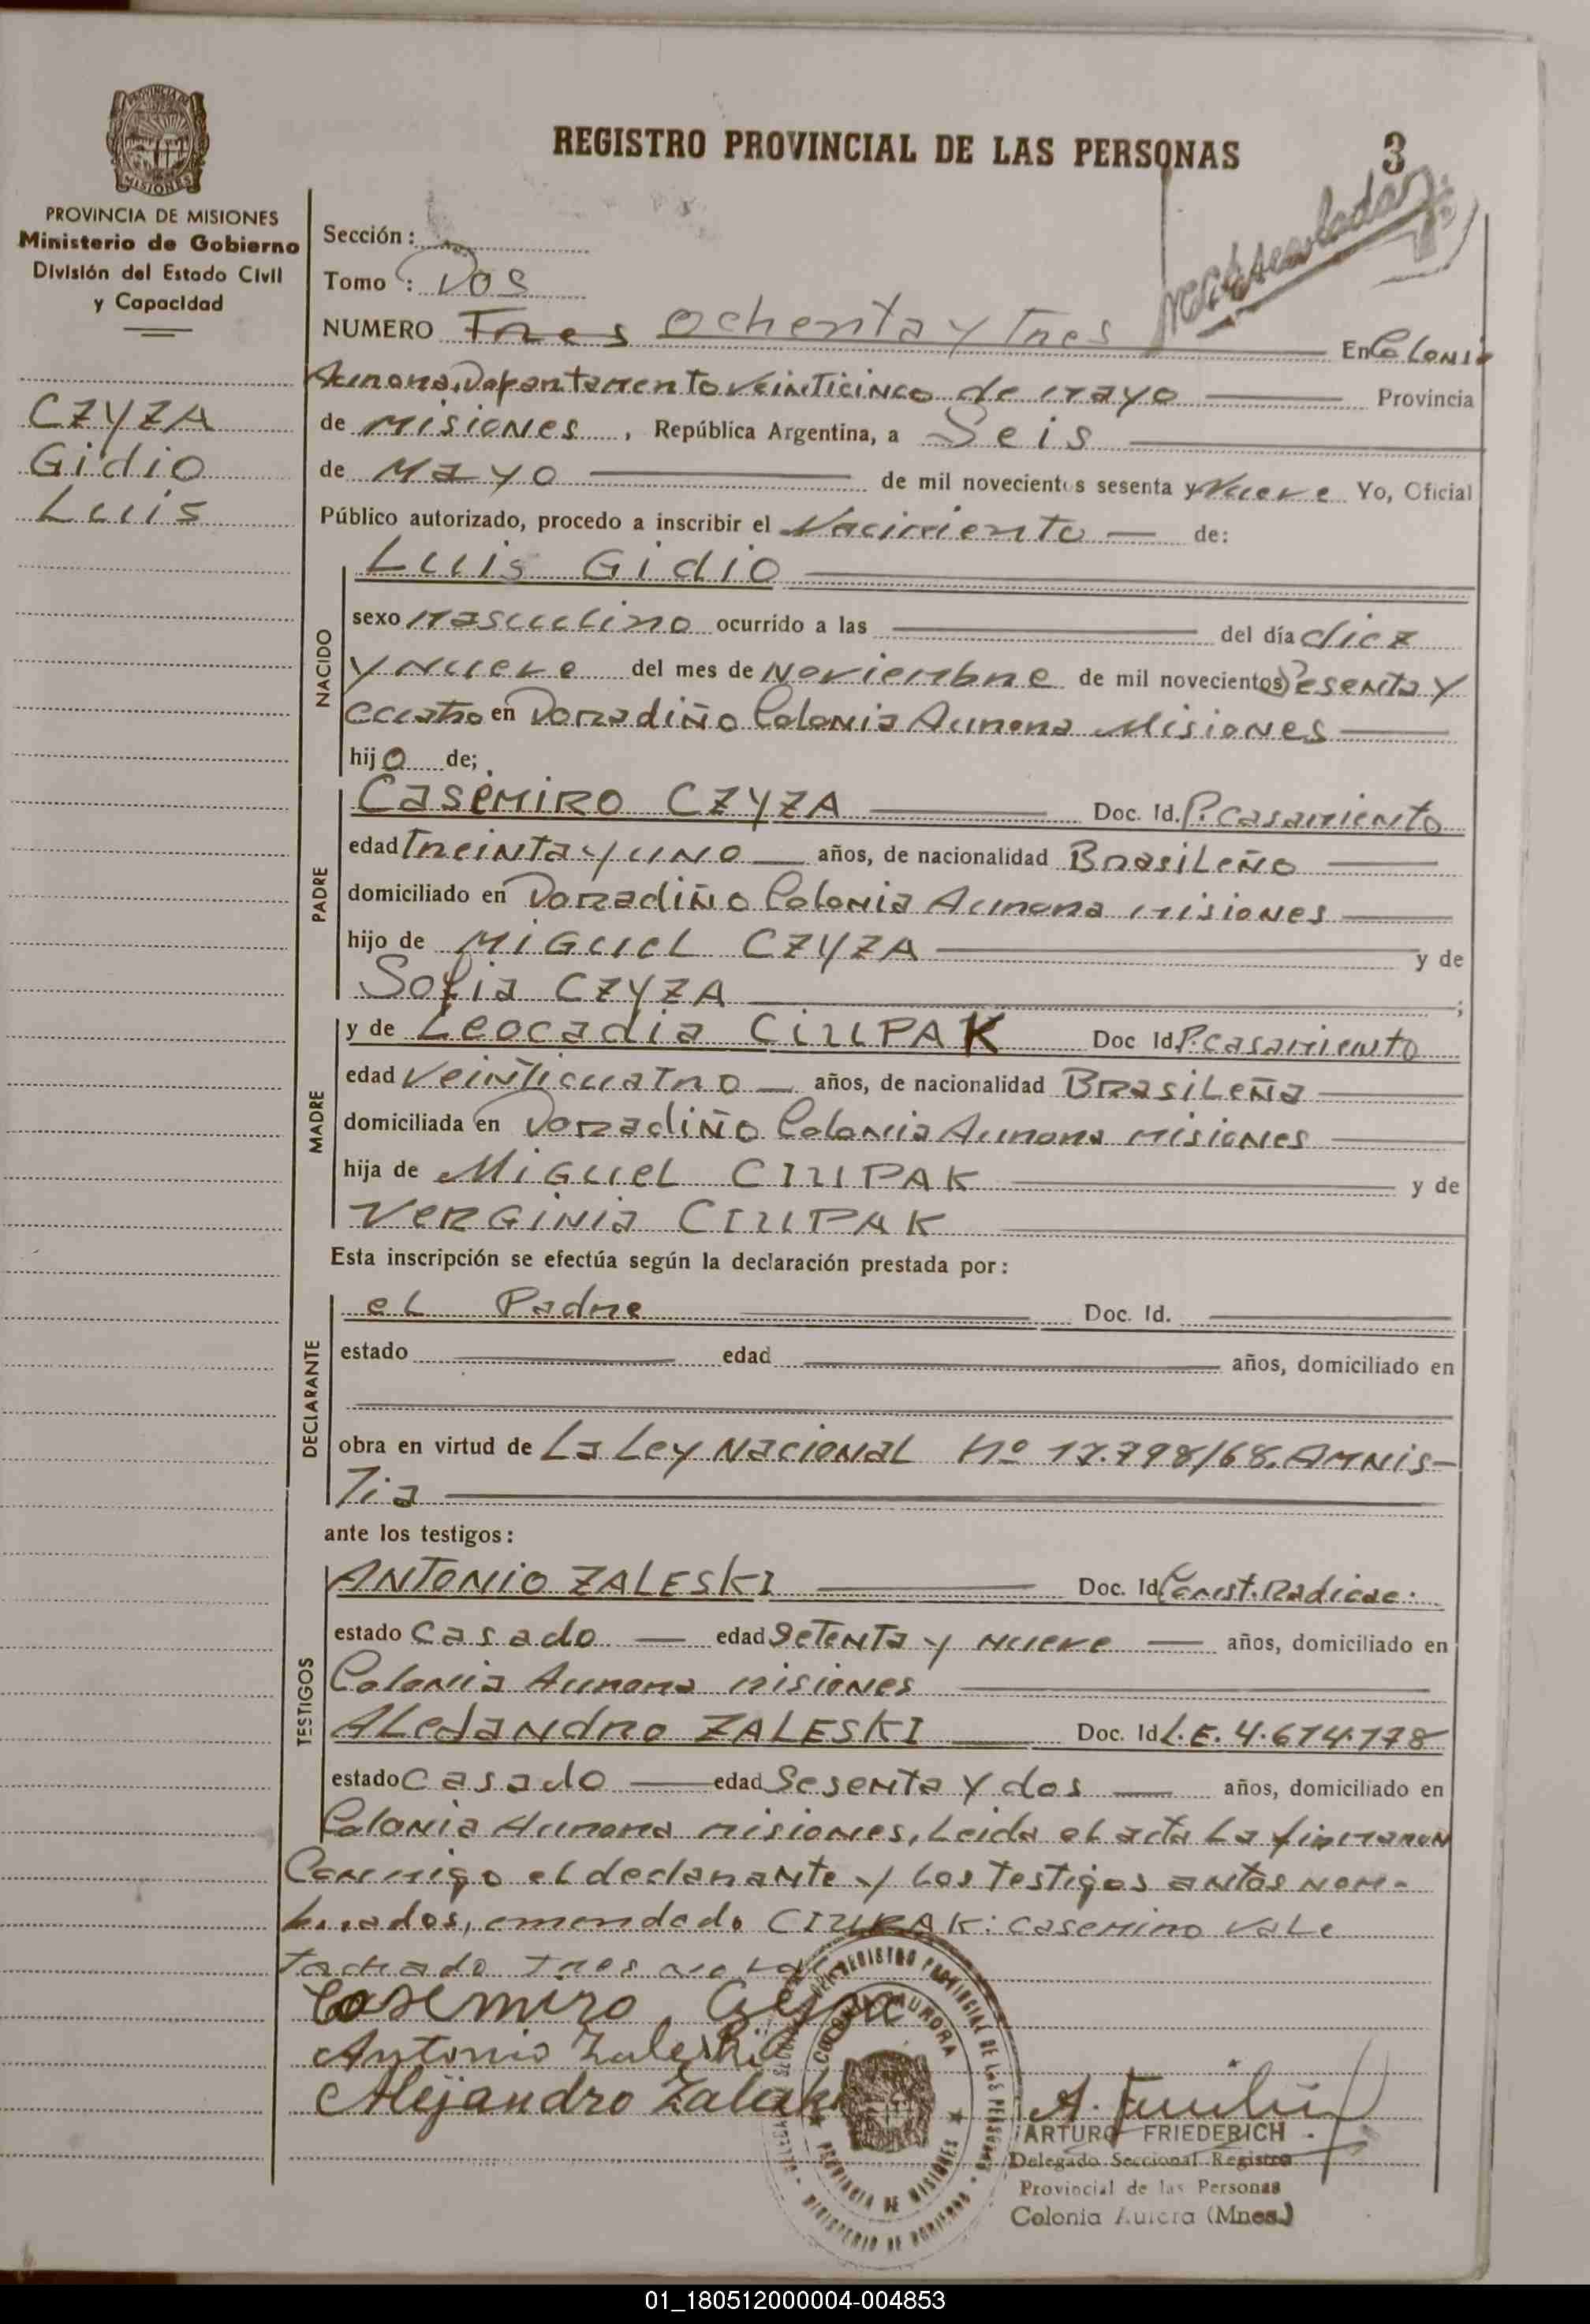 PROVINCIA DE MISIONES
Ministerio de Gobierno
División del Estado Civil
y Capacidad
CZYZA
Gidio
Luis
REGISTRO PROVINCIAL DE LAS PERSONAS
3
Sección:
Tomo: Dos
NUMERO Tres Ochenta y Tres En Colonia
Aurora, Departamento Veinticinco de Mayo Provincia
de Misiones, República Argentina, a Seis
de Mayo de mil novecientos sesenta y Nueve Yo, Oficial
Público autorizado, procedo a inscribir el Nacimiento de:
Luis Gidio
NACIDO
sexo masculino ocurrido a las del día diez
y nueve del mes de Noviembre de mil novecientos Sesenta y
cuatro en Doradiño Colonia Aurora Misiones
hijo de;
PADRE
Casemiro CZYZA Doc. Id. P. casamiento
edad Treinta y uno años, de nacionalidad Brasileño
domiciliado en Doradiño Colonia Aurora misiones
hijo de MIGUEL CZYZA y de
Sofia CZYZA ;
MADRE
y de Leocadia CIUPAK Doc Id P. casamiento
edad Veinticuatro años, de nacionalidad Brasileña
domiciliada en Doradiño Colonia Aurora misiones
hija de Miguel CIUPAK y de
VERGINIA CIUPAK
Esta inscripción se efectúa según la declaración prestada por:
DECLARANTE
el Padre Doc. Id.
estado edad años, domiciliado en
obra en virtud de La Ley Nacional Nº 17.798/68. Amnis-
Tia
ante los testigos:
TESTIGOS
ANTONIO ZALESKI Doc. Id Const. Radicac.
estado Casado edad Setenta y nueve años, domiciliado en
Colonia Aurora misiones
Alejandro ZALESKI Doc. Id L.E. 4.674.778
estado Casado edad Sesenta y dos años, domiciliado en
Colonia Aurora misiones, Leida el acta La firmaron
Conmigo el declarante y los testigos antes nom-
brados, enmendado CIUPAK: casemiro vale
Tachado Tres no vale
Casemiro Czyza
Antonio Zaleski
Alejandro Zaleski
REGISTRO PROVINCIAL DE LAS PERSONAS
COLONIA AURORA
PROVINCIA DE MISIONES
MINISTERIO DE GOBIERNO
ARTURO FRIEDERICH
Delegado Seccional Registro
Provincial de las Personas
Colonia Aurora (Mnes.)
01_180512000004-004853